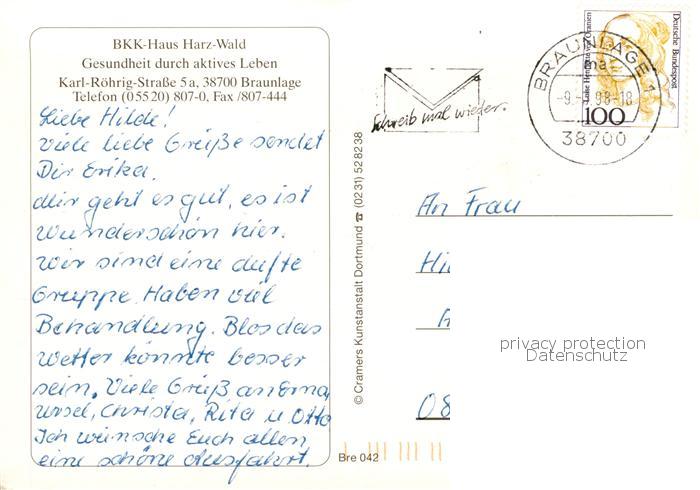 BKK-Haus Harz-Wald
Gesundheit durch aktives Leben
Karl-Röhrig-Straße 5 a, 38700 Braunlage
Telefon (0 55 20) 807-0, Fax /807-444
Liebe Hilde!
Viele liebe Grüße sendet
Dir Erika.
Mir geht es gut, es ist
wunderschön hier.
Wir sind eine dufte
Gruppe. Haben viel
Behandlung. Blos das
Wetter könnte besser
sein. Viele Grüß an Erna,
Ursel, Christa, Rita u. Otto
Ich wünsche Euch allen
eine schöne Ausfahrt.
© Cramers Kunstanstalt Dortmund ☎ (0231) 528238
Bre 042
Schreib mal wieder.
BRAUNLAGE 1
ma
-9. 98-18
38700
Deutsche Bundespost
Luise Henriette von Oranien
100
An Frau
Hi
08
privacy protection
Datenschutz